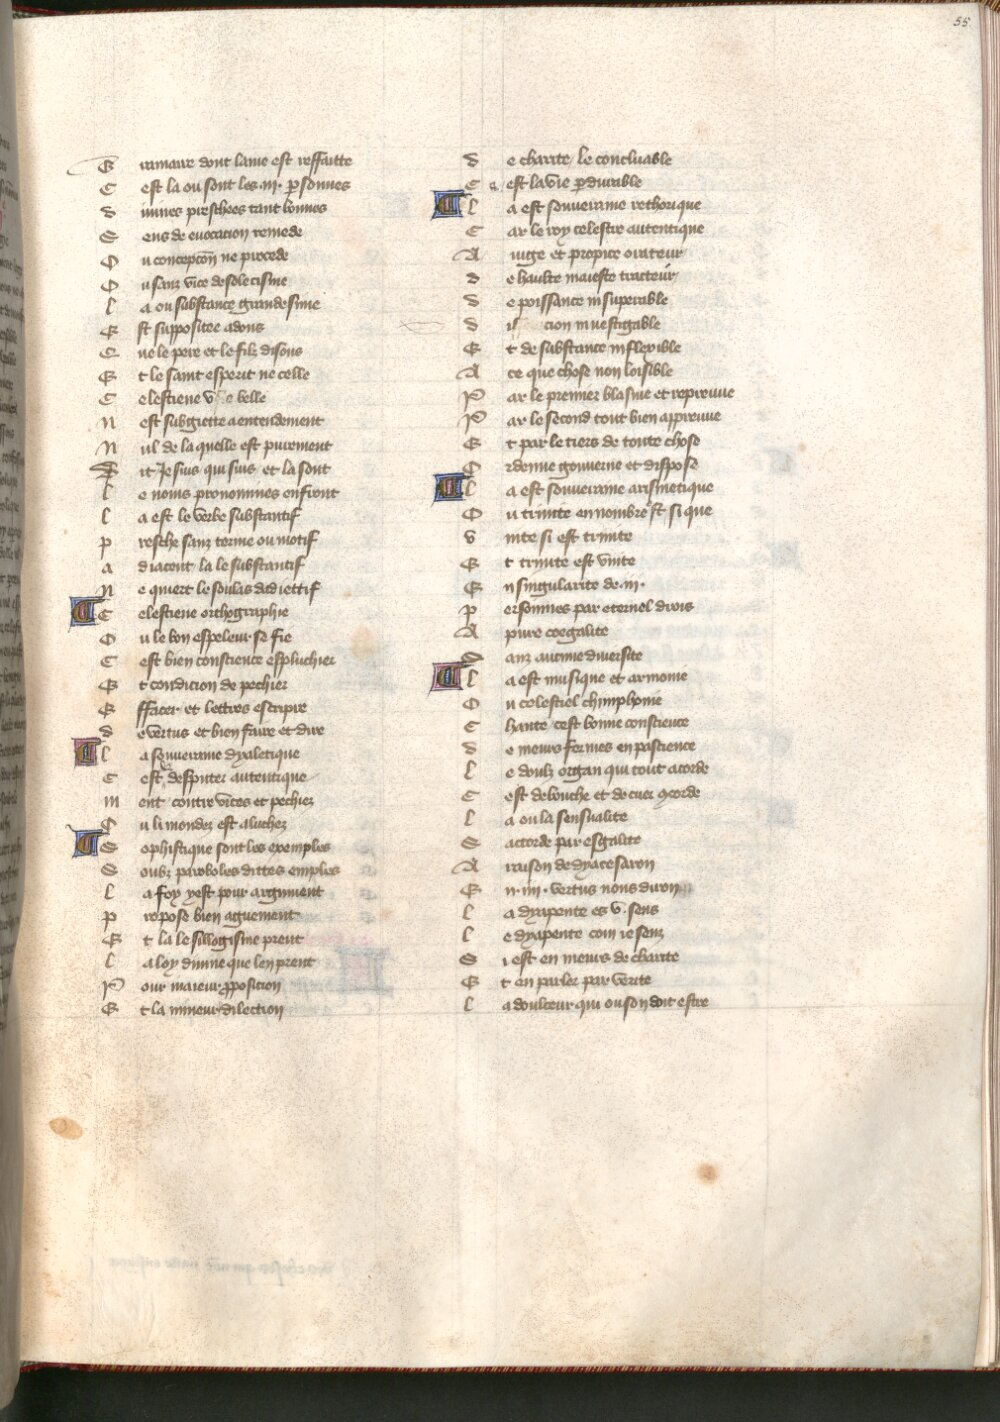 55
G ramaire dont lame est reffaitte
C est la ou sont les .iii. personnes
d iuines preschees tant bonnes
S ens de euocacion remede
O u concepcion ne procede
O u sanz vice de solecisme
l a ou substance grandesime
E st suppositee adons
Q ue le pere et le filz disons
E t le saint esperit ne celle
C elestiene belle
n est subgiette a entendement
N ul de la quelle est purement
D it Je suis qui suis et la sont
l e noms pronommes en front
l a est le verbe substantif
p resche sanz terme ou motif
a diacent la le substantif
N e quiert le soulas dadiettif
C elestiene orthographie
O u le bon espeleur se fie
C est bien conscience espluchier
E t condicion de pechier
E ffacer et lettres escripre
d e vertus et bien faire et dire
l a souueraine dyaletique
C est desputer autentique
m ent contre vices et pechiez
O u li mondez est aluchez
S ophistique sont les exemples
S oubz paraboles dittes emples
l a foy y est pour argument
p ropose bien aguement
E t la le sillogisme prent
l a loy diuine que len prent
P our maieur proposition
E t la mineur dilection
d e charite le concluable
C est la vie perdurable
l a est souueraine rethorique
C ar le roy celestre autentique
A iuge et propice orateur
d e haulte maieste tratteur
d e poissance insuperable
d cion inuestigable
E t de substance inflexible
A ce que chose non loisible
P ar le premier blasme et repreuue
P ar le second tout bien appreuue
E t par le tiers de toute chose
O rdenne gouuerne et dispose
l a est souueraine arismetique
O u trinite en nombre est si que
v nite si est trinite
E t trinite est vnite
E n singularite de .iii.
p ersonnes par eternel drois
A pure coegalite
S anz aucune diuersite
l a est musique et armonie
O u celestiel chimphonie
C hante cest bonne conscience
d e meurs fermes en pascience
l e doulz organ qui tout acorde
C est de bouche et de cuer concorde
l a ou la sensualite
S acorde par esgalite
A raison de dyatesaron
E n .iiii. vertus nous diron
l a dyapente es .v. sens
l e dyapente com ie senz
S i est en meurs de charite
E t en parler par verite
l a doulceur qui ou son doit estre